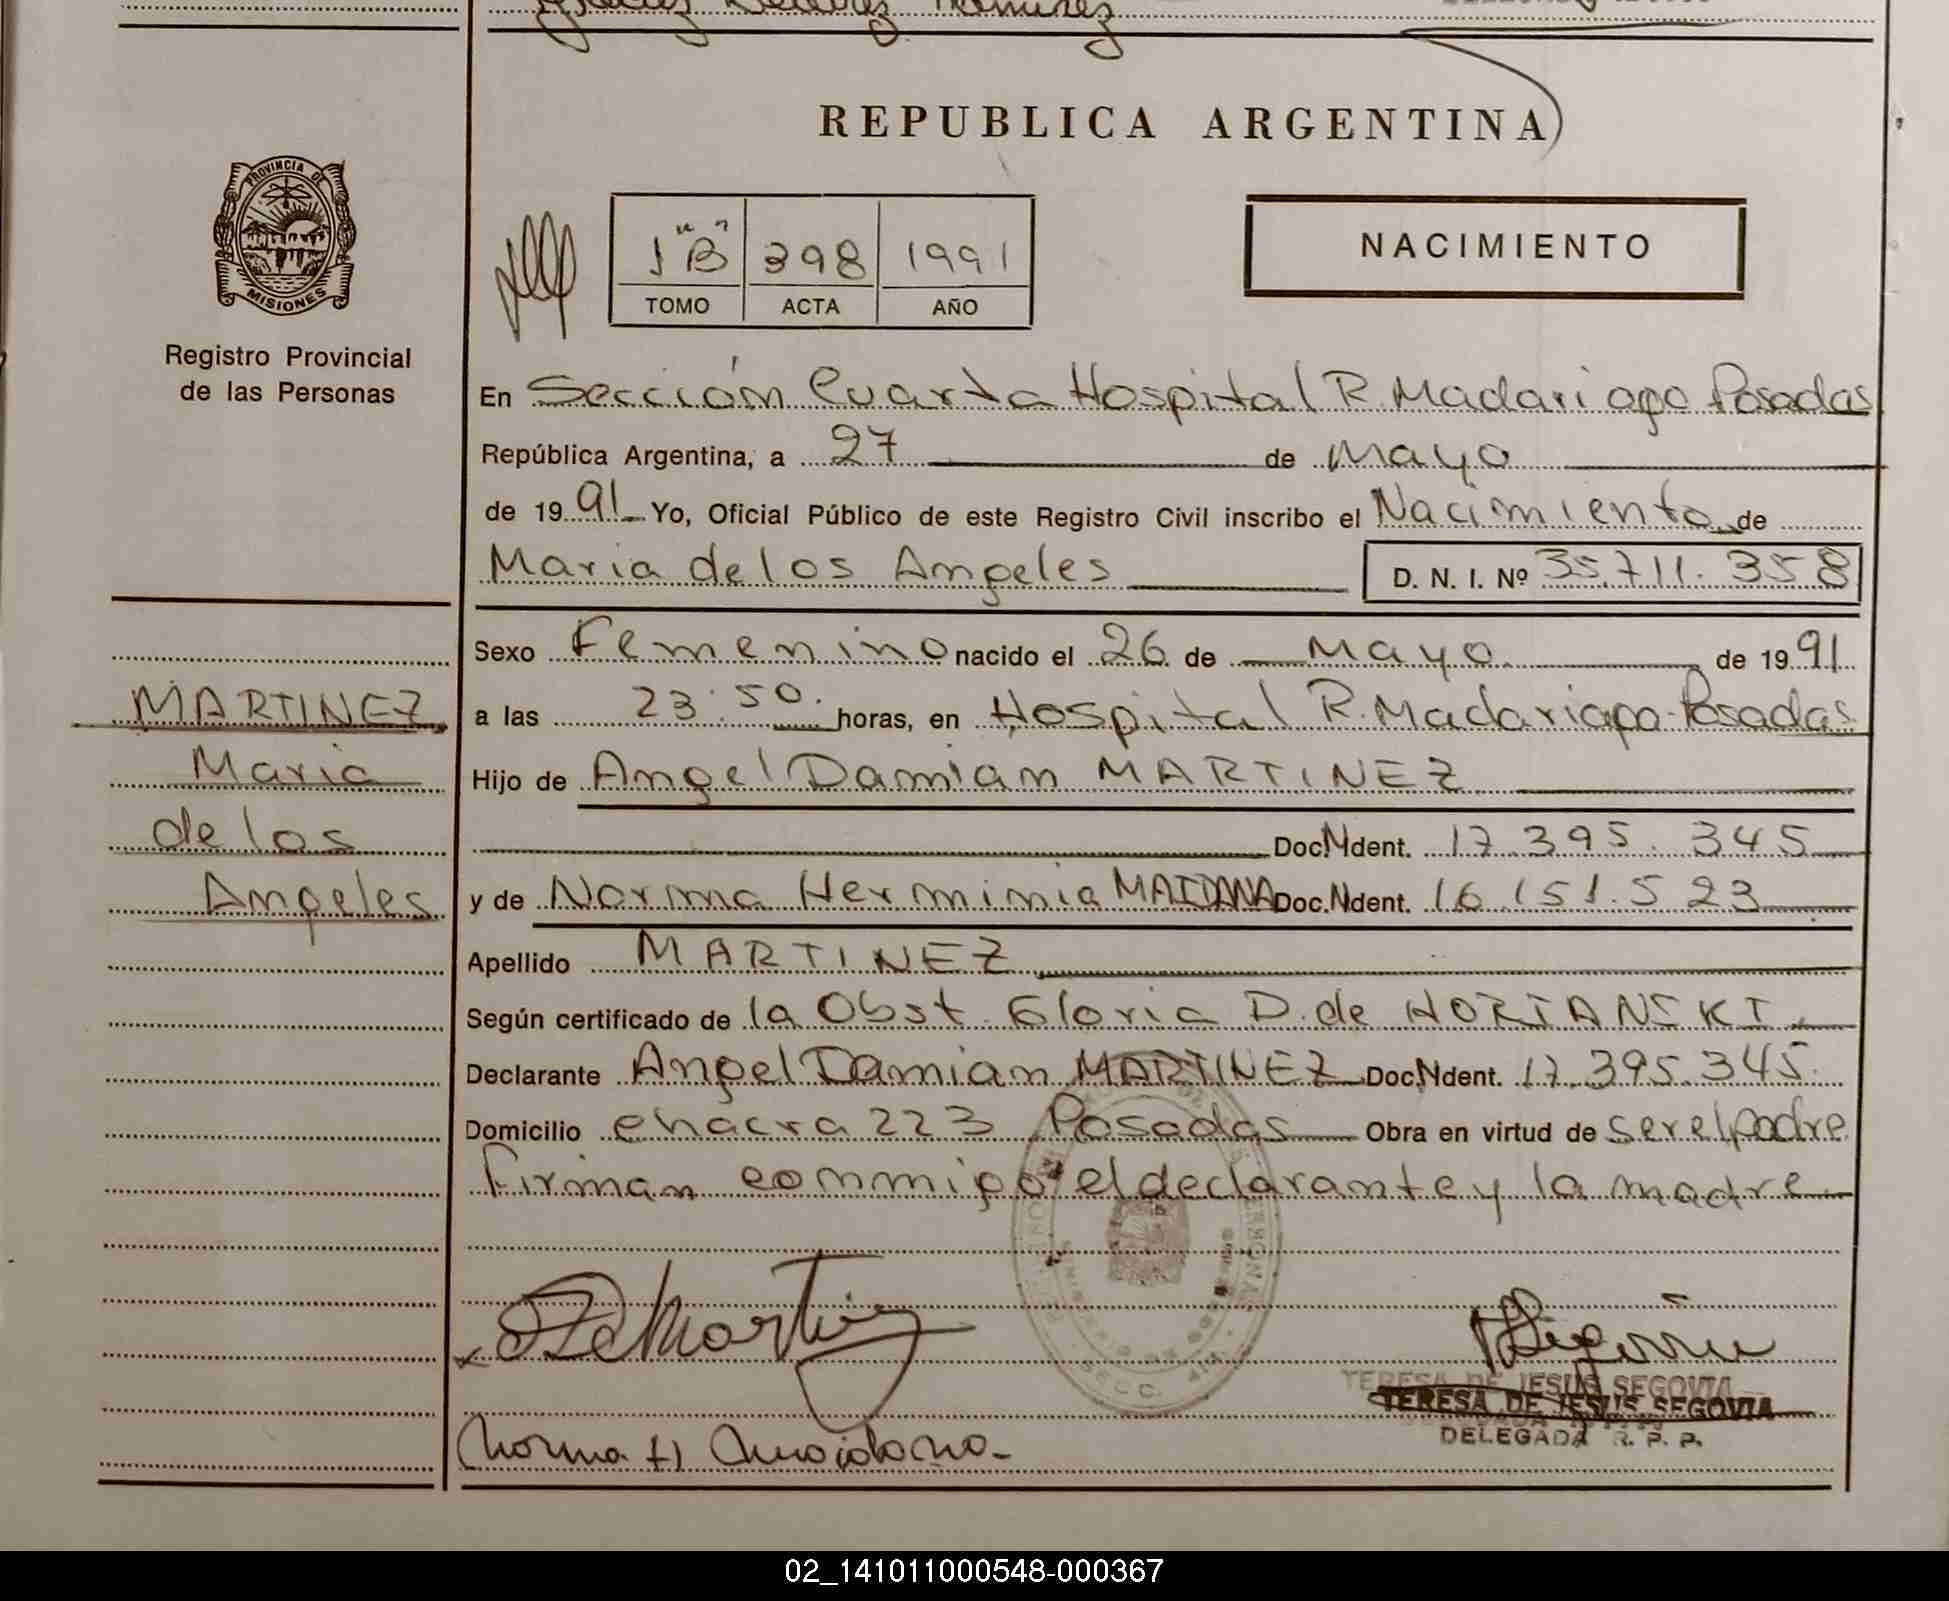 REPUBLICA ARGENTINA
PROVINCIA DE
MISIONES
Registro Provincial
de las Personas
1 "B" 398 1991
TOMO ACTA AÑO
NACIMIENTO
En Sección Cuarta Hospital R. Madariaga Posadas
República Argentina, a 27 de Mayo
de 1991 Yo, Oficial Público de este Registro Civil inscribo el Nacimiento de
Maria de los Angeles D. N. I. Nº 35.711.358
Sexo Femenino nacido el 26 de Mayo de 1991
a las 23:50. horas, en Hospital R. Madariaga-Posadas
Hijo de Angel Damian MARTINEZ
Doc.N Ident. 17.395.345
y de Norma Herminia MAIDANA Doc.N Ident. 16.151.523
Apellido MARTINEZ
Según certificado de la Obst. Gloria D. de
Declarante Angel Damian MARTINEZ Doc.N Ident. 17.395.345.
Domicilio chacra 223 Posadas Obra en virtud de ser el padre
firman conmigo el declarante y la madre
MARTINEZ
Maria
de los
Angeles
TERESA DE JESUS SEGOVIA
TERESA DE JESUS SEGOVIA
DELEGADA R. P. P.
Norma H Maidana-
SECC. 4ta
02_141011000548-000367